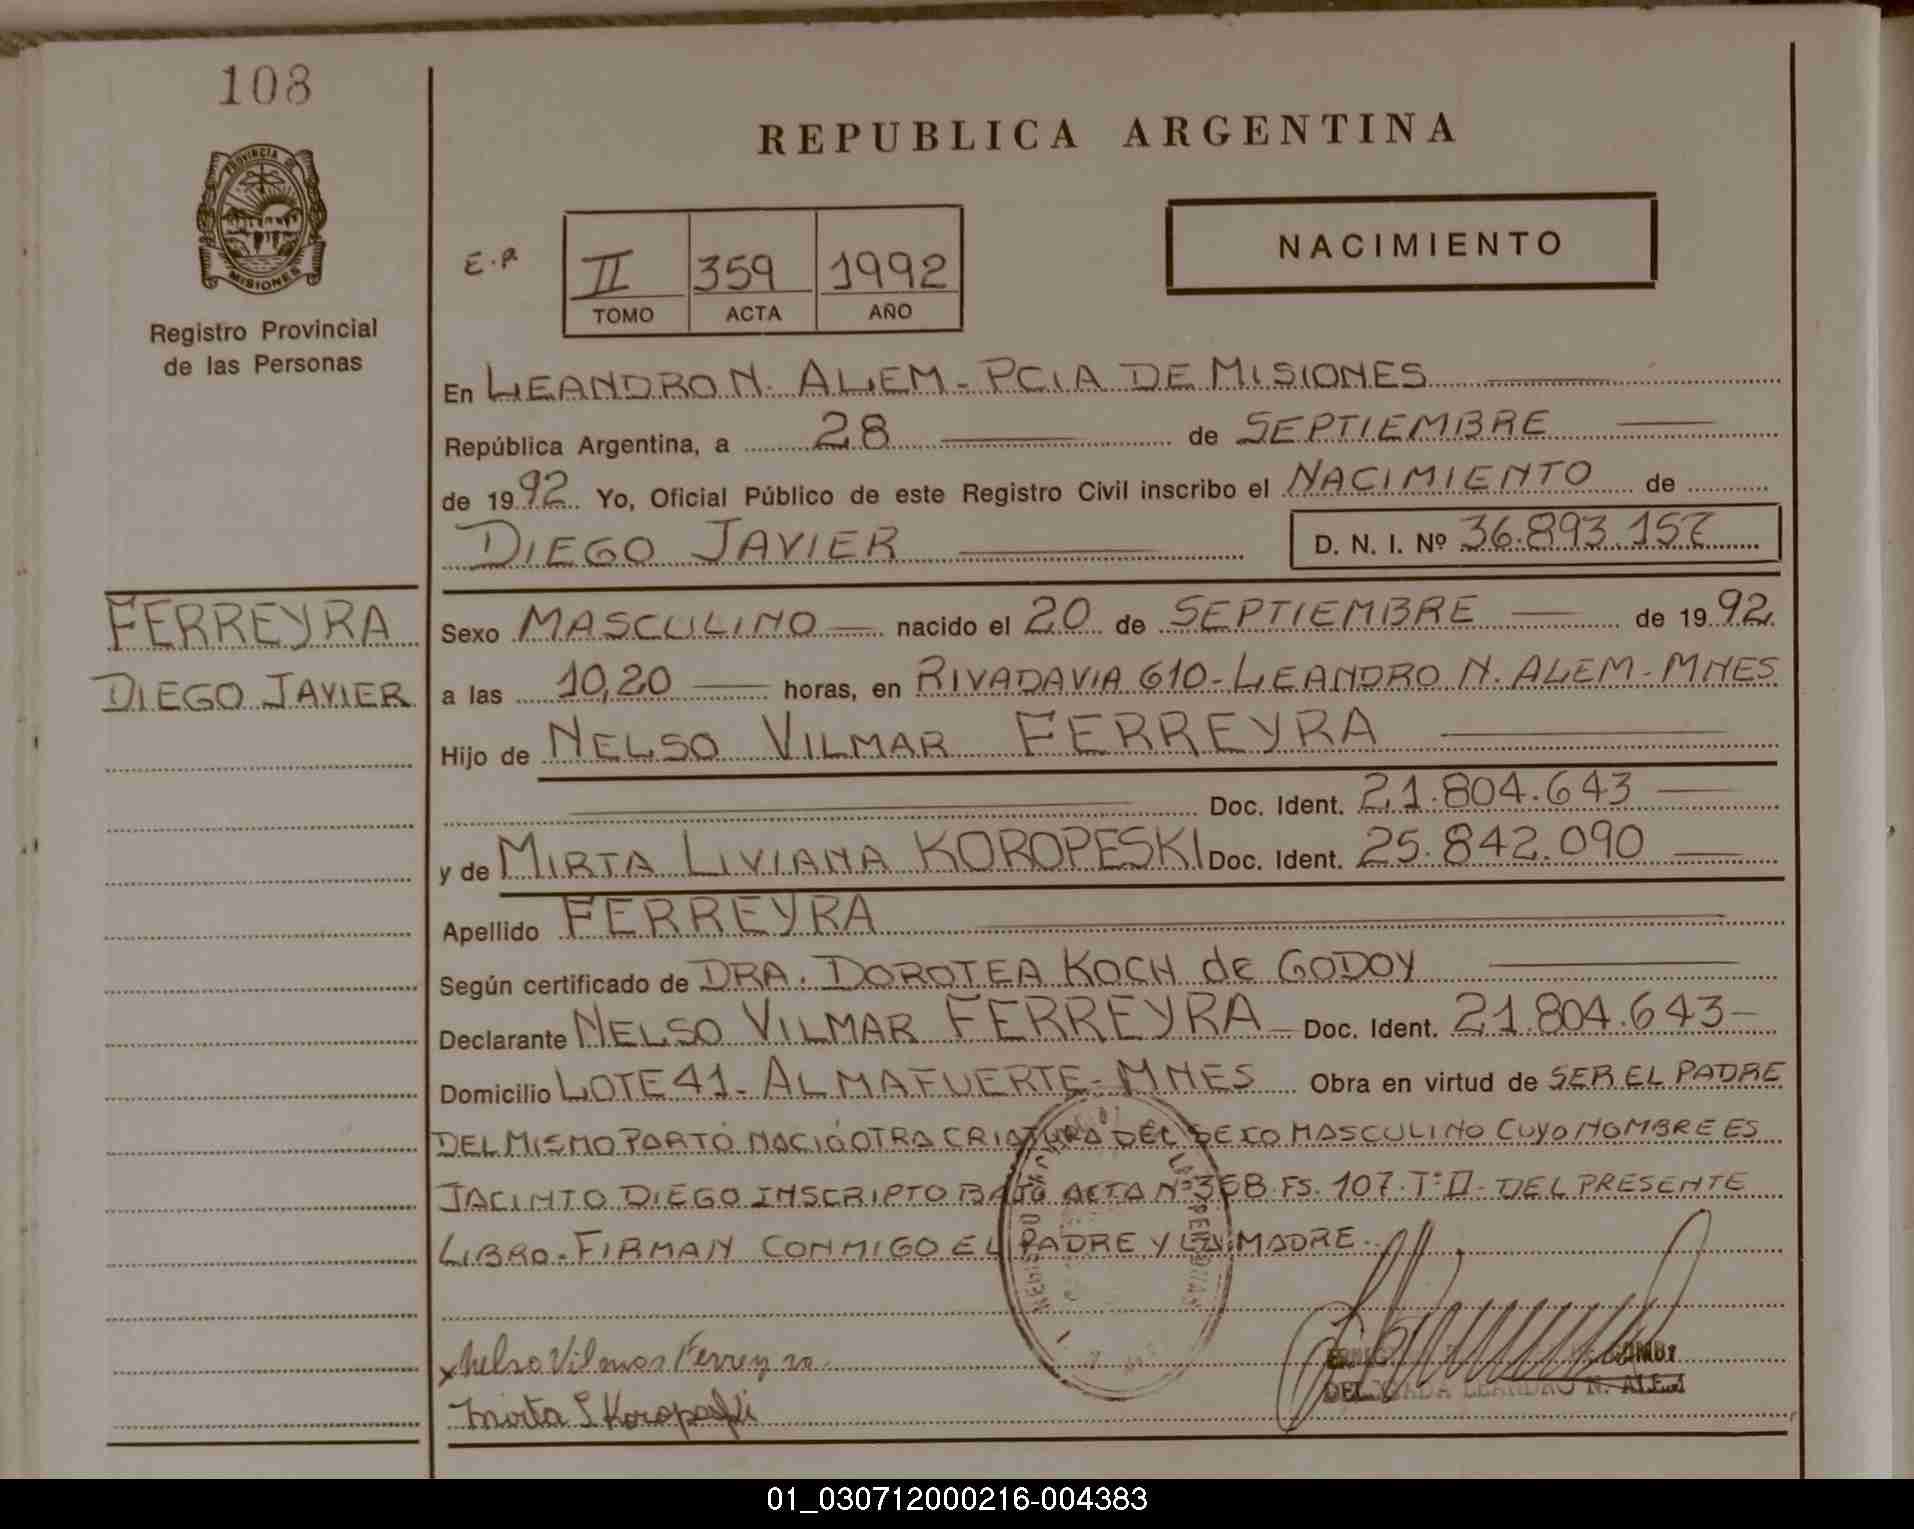 108
PROVINCIA DE
MISIONES
Registro Provincial
de las Personas
FERREYRA
DIEGO JAVIER
REPUBLICA ARGENTINA
E.P.
II 359 1992
TOMO ACTA AÑO
NACIMIENTO
En LEANDRO N. ALEM - PCIA DE MISIONES
República Argentina, a 28 de SEPTIEMBRE
de 1992 Yo, Oficial Público de este Registro Civil inscribo el NACIMIENTO de
DIEGO JAVIER D. N. I. Nº 36.893.157
Sexo MASCULINO nacido el 20 de SEPTIEMBRE de 1992
a las 10,20 horas, en RIVADAVIA 610 - LEANDRO N. ALEM - MNES
Hijo de NELSO VILMAR FERREYRA
Doc. Ident. 21.804.643
y de MIRTA LIVIANA KOROPESKI Doc. Ident. 25.842.090
Apellido FERREYRA
Según certificado de DRA. DOROTEA KOCH de GODOY
Declarante NELSO VILMAR FERREYRA Doc. Ident. 21.804.643
Domicilio LOTE 41 - ALMAFUERTE - MNES Obra en virtud de SER EL PADRE
DEL MISMO PARTO NACIÓ OTRA CRIATURA DEL SEXO MASCULINO CUYO NOMBRE ES
JACINTO DIEGO INSCRIPTO BAJO ACTA Nº 358 FS. 107 - Tº II - DEL PRESENTE
LIBRO - FIRMAN CONMIGO EL PADRE Y LA MADRE.
Nelso Vilmar Ferreyra
Mirta L Koropeski
DELEGADA LEANDRO N. ALEM
01_030712000216-004383